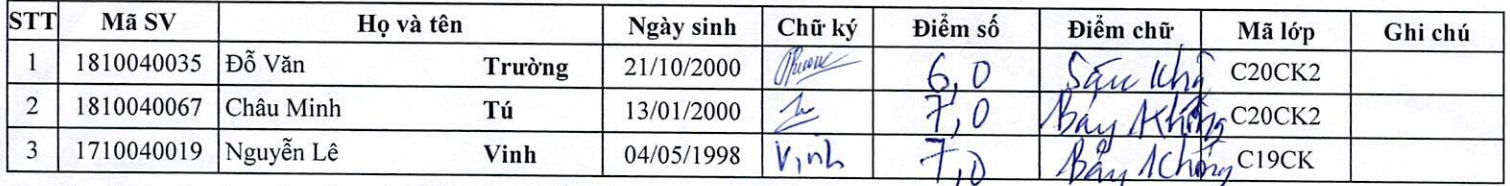 STT Mã SV Họ và tên Ngày sinh Chữ ký Điểm số Điểm chữ Mã lớp Ghi chú
1 1810040035 Đỗ Văn Trường 21/10/2000 6,0 Sáu không C20CK2
2 1810040067 Châu Minh Tú 13/01/2000 7,0 Bảy không C20CK2
3 1710040019 Nguyễn Lê Vinh 04/05/1998 Vinh 7,0 Bảy không C19CK